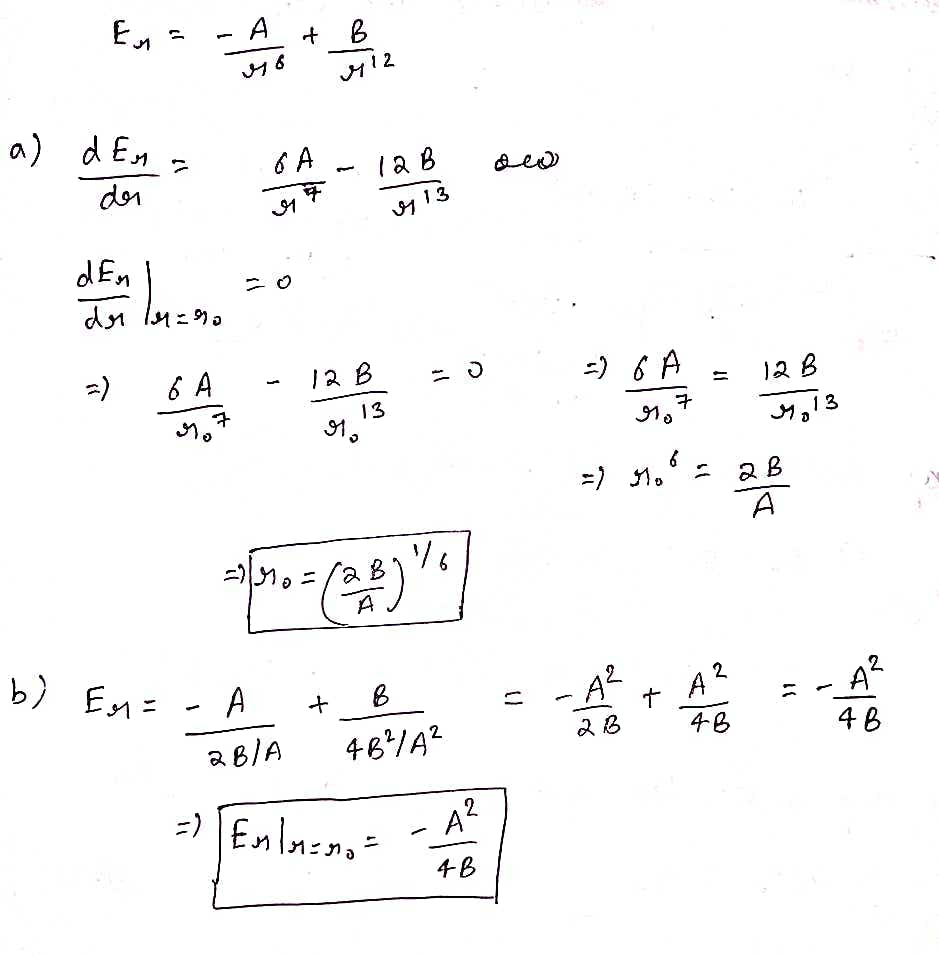 E_r = - A/r^6 + B/r^12
a) dE_r/dr = 6A/r^7 - 12B/r^13
dE_r/dr |_{r=r_0} = 0
=> 6A/r_0^7 - 12B/r_0^13 = 0 => 6A/r_0^7 = 12B/r_0^13
=> r_0^6 = 2B/A
=> r_0 = (2B/A)^{1/6}
b) E_r = - A/(2B/A) + B/(4B^2/A^2) = - A^2/2B + A^2/4B = - A^2/4B
=> E_r|_{r=r_0} = - A^2/4B